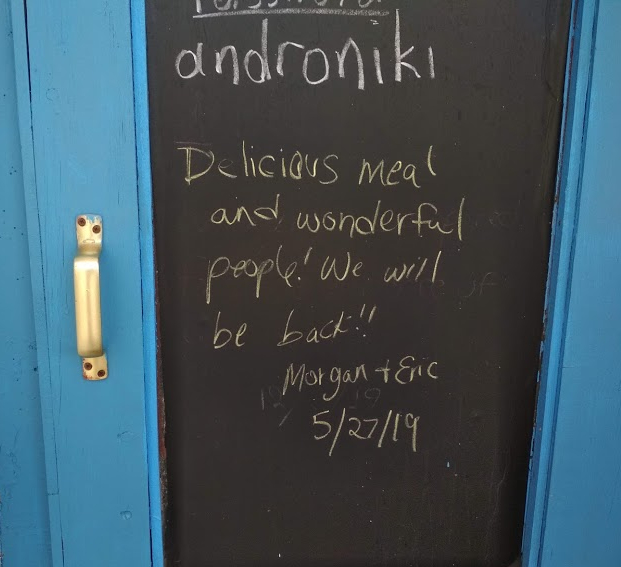 androniki
Delicious meal
and wonderful
people! We will
be back!!
Morgan + Eric
5/27/19